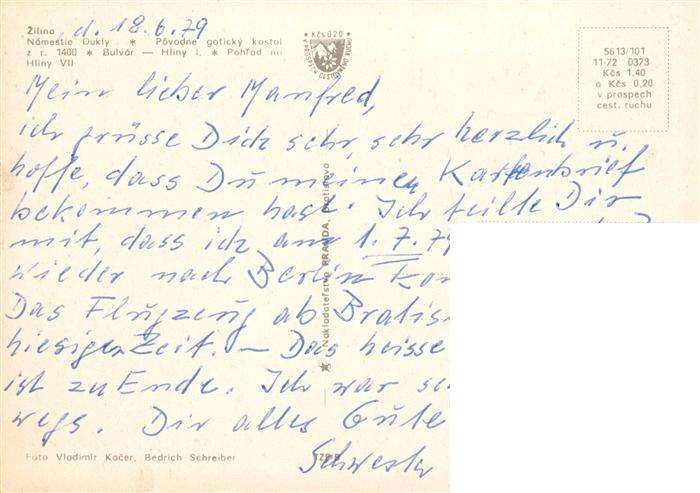 Žilina, d. 18.6.79
Námestie Dukly * Pôvodne gotický kostol
z r. 1400 * Bulvár — Hliny I. * Pohľad na
Hliny VII
Kčs 0,20
5613/101
11-72 0373
Kčs 1,40
a Kčs 0,20
v prospech
cest. ruchu
Mein lieber Manfred,
ich grüsse Dich sehr, sehr herzlich u.
hoffe, dass Du meinen Kartenbrief
bekommen hast. Ich teilte Dir
mit, dass ich am 1.7.79
wieder nach Berlin kom
Das Flugzeug ab Bratis
hiesiger Zeit. — Das heisse
ist zu Ende. Ich war se
wegs. Dir alles Gute
Schwester
★ Nakladateľstvo PRAVDA, Bratislava
Foto Vladimír Kočer, Bedrich Schreiber